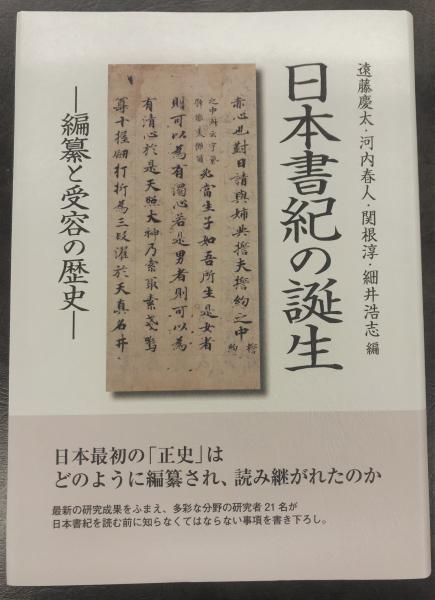 遠藤慶太・河内春人・関根淳・細井浩志 編
日本書紀の誕生
―編纂と受容の歴史―
赤心也對曰請與姉共誓夫誓約之中
之中
則可以為有濁心若是男者則可以為
有清心於是天照大神乃索取素戔嗚
尊十握劒打折為三段濯於天真名井
日本最初の「正史」は
どのように編纂され、読み継がれたのか
最新の研究成果をふまえ、多彩な分野の研究者21名が
日本書紀を読む前に知らなくてはならない事項を書き下ろし。